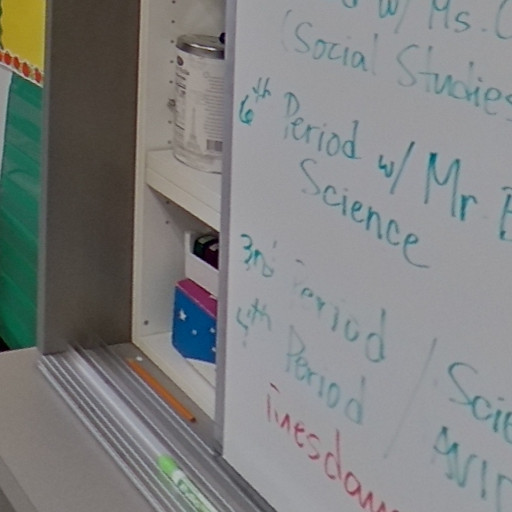 w/ Ms.
(Social Studies
6th Period w/ Mr.
Science
3rd Period
4th Period / Scie
AVID
Tuesday